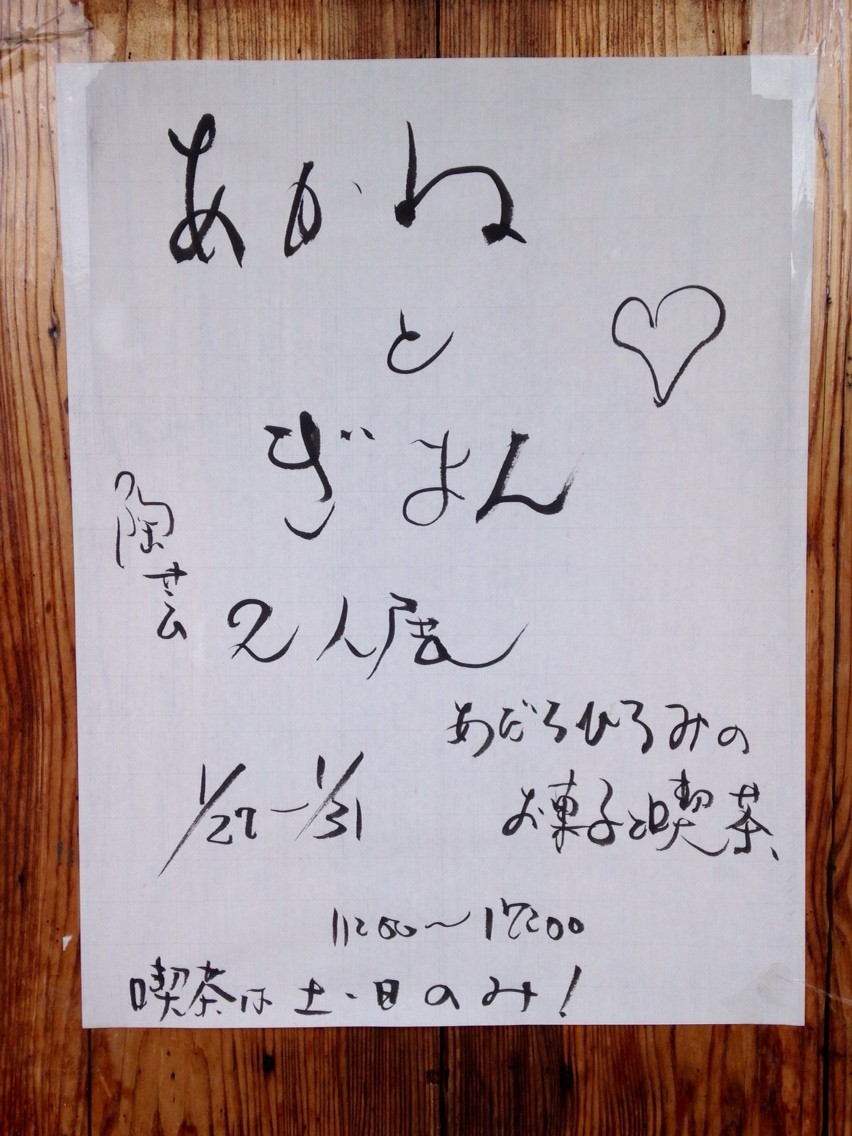 あかね
と
ぎまん
陶芸
2人展
あどろひろみの
お菓子と喫茶、
1/27－1/31
11:00～17:00
喫茶は土・日のみ！